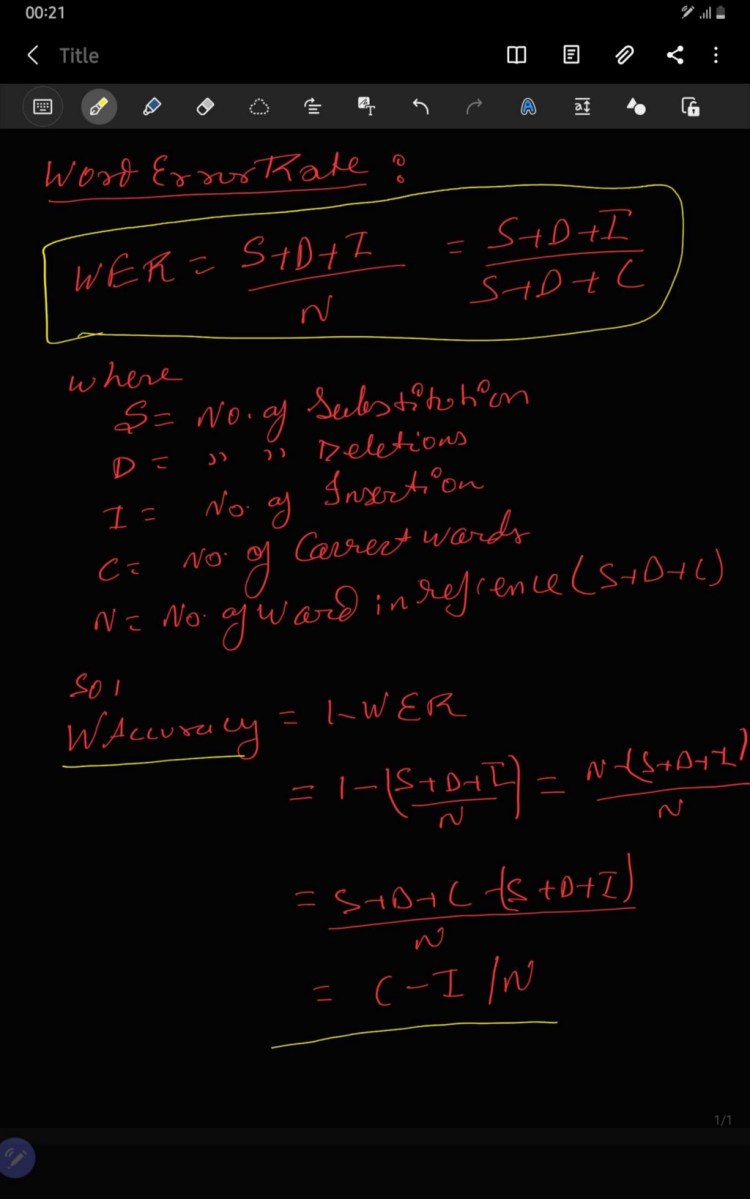 00:21
Title
Word Error Rate :
WER = S+D+I / N = S+D+I / S+D+C
where
S = No. of Substitution
D = " " Deletions
I = No. of Insertion
C = No. of Correct words
N = No. of word in refrence (S+D+C)
So,
WAccuracy = 1-WER
= 1-(S+D+I / N) = N-(S+D+I) / N
= S+D+C-(S+D+I) / N
= C-I/N
1/1